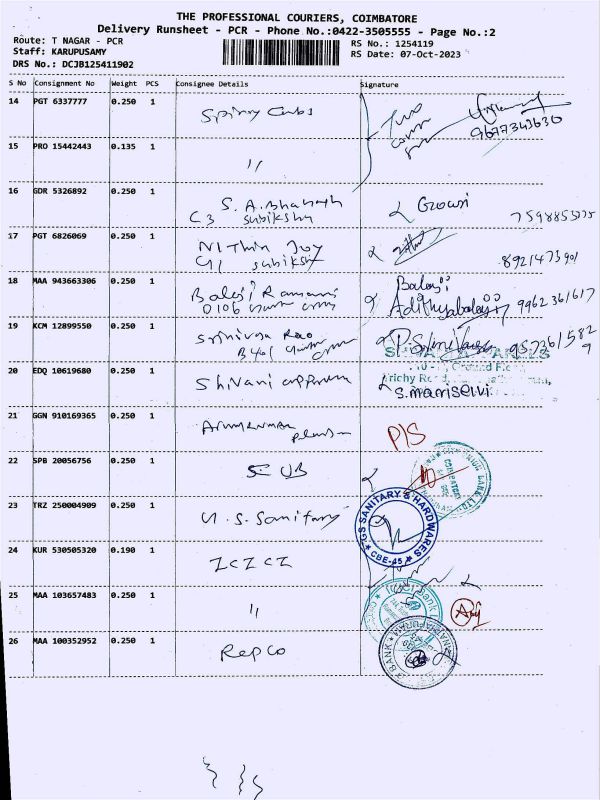 THE PROFESSIONAL COURIERS, COIMBATORE
Delivery Runsheet - PCR - Phone No.:0422-3505555 - Page No.:2
Route: T NAGAR - PCR
Staff: KARUPUSAMY
DRS No.: DCJB125411902
RS No.: 1254119
RS Date: 07-Oct-2023
S No Consignment No Weight PCS Consignee Details Signature
14 PGT 6337777 0.250 1
9677343630
15 PRO 15442443 0.135 1 "
16 GDR 5326892 0.250 1 S. A. Bharath
C3 Subiksha
Gowri
7598855775
17 PGT 6826069 0.250 1 Nithin Joy
G1 Subiksha
8921473901
18 MAA 943663306 0.250 1 Balaji Ramani
0106
Balaji
Adithyabalaji 9962361617
19 KCM 12899550 0.250 1 Srinivasa Rao
B401
9573615829
20 EDQ 10619680 0.250 1 Shivani
S. Maniselvi
21 GGN 910169365 0.250 1 Arunkumar
P/S
22 SPB 20056756 0.250 1 CUB
CITY UNION BANK LTD
COIMBATORE
23 TRZ 250004909 0.250 1 G. S. Sanitary
GS SANITARY & HARDWARES
CBE-45
24 KUR 530505320 0.190 1 ICICI
25 MAA 103657483 0.250 1 "
ICICI Bank
26 MAA 100352952 0.250 1 Repco
BANK